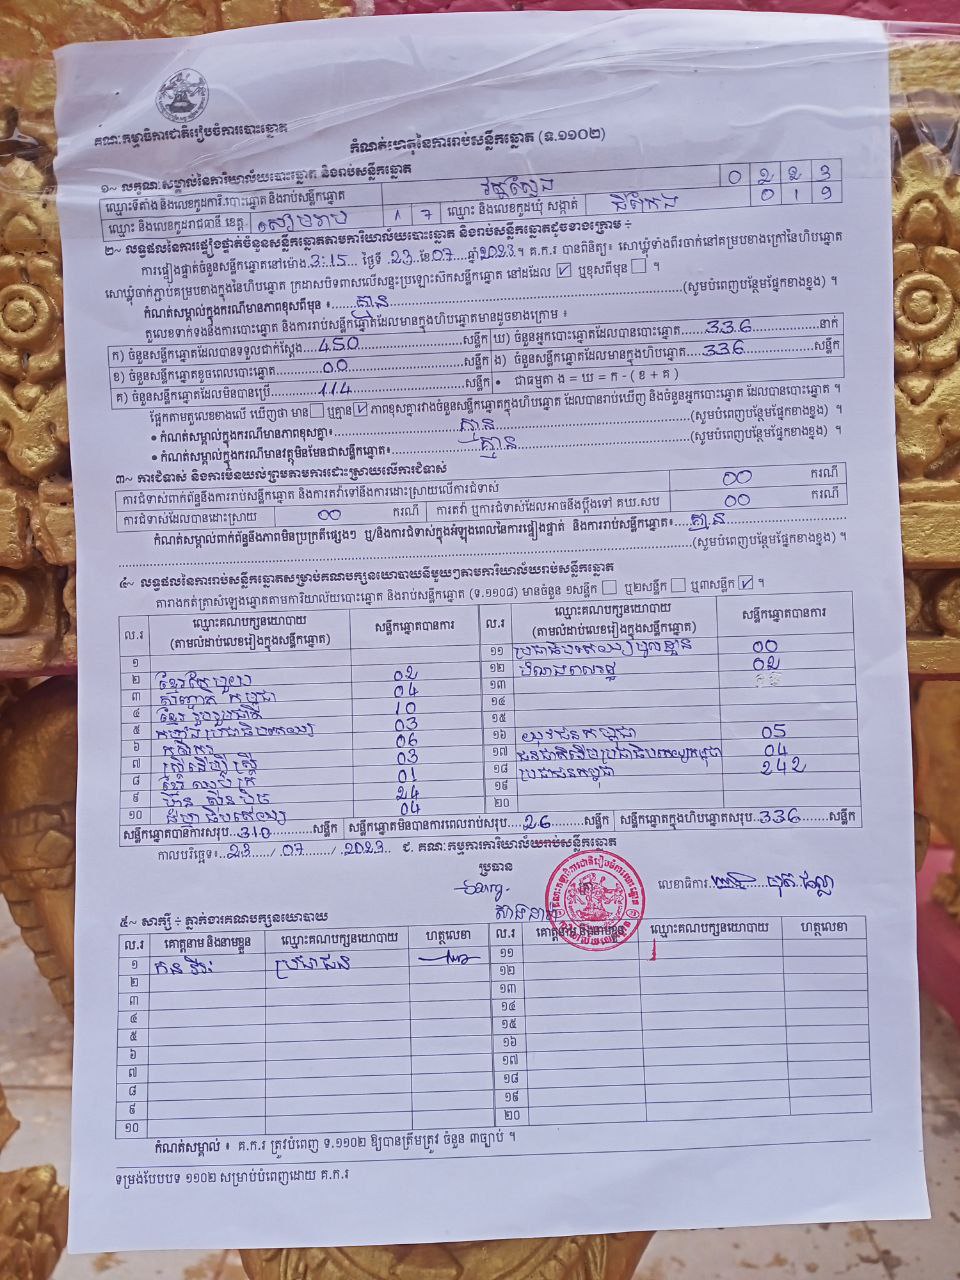 គណៈកម្មាធិការជាតិរៀបចំការបោះឆ្នោត
កំណត់ហេតុនៃការរាប់សន្លឹកឆ្នោត (ទ.១១០២)
១~ លក្ខណៈសម្គាល់នៃការិយាល័យបោះឆ្នោត និងរាប់សន្លឹកឆ្នោត
ឈ្មោះទីតាំង និងលេខកូដការិ.បោះឆ្នោត និងរាប់សន្លឹកឆ្នោត 0 2 2 3
ឈ្មោះ និងលេខកូដរាជធានី ខេត្ត សៀមរាប 1 7 ឈ្មោះ និងលេខកូដឃុំ សង្កាត់ 0 1 9
២~ លទ្ធផលនៃការផ្ទៀងផ្ទាត់ចំនួនសន្លឹកឆ្នោតតាមការិយាល័យបោះឆ្នោត និងរាប់សន្លឹកឆ្នោតដូចខាងក្រោម ÷
ការផ្ទៀងផ្ទាត់ចំនួនសន្លឹកឆ្នោតនៅម៉ោង 3:15 ថ្ងៃទី 23 ខែ 07 ឆ្នាំ 2023 ។ គ.ក.រ បានពិនិត្យ៖ សោឃ្លុំទាំងពីរចាក់នៅគម្របខាងក្រៅនៃហិបឆ្នោត
សោឃ្លុំចាក់ភ្ជាប់គម្របខាងក្នុងនៃហិបឆ្នោត ក្រដាសបិទពាសលើសន្ទះប្រឡោះសៀកសន្លឹកឆ្នោត នៅដដែល ☑ ឬខុសពីមុន ☐ ។
កំណត់សម្គាល់ក្នុងករណីមានភាពខុសពីមុន ៖ គ្មាន (សូមបំពេញបន្ថែមផ្នែកខាងខ្នង) ។
តួលេខទាក់ទងនឹងការបោះឆ្នោត និងការរាប់សន្លឹកឆ្នោតដែលមានក្នុងហិបឆ្នោតមានដូចខាងក្រោម ៖
ក) ចំនួនសន្លឹកឆ្នោតដែលបានទទួលជាក់ស្តែង 450 សន្លឹក ឃ) ចំនួនអ្នកបោះឆ្នោតដែលបានបោះឆ្នោត 336 នាក់
ខ) ចំនួនសន្លឹកឆ្នោតខូចពេលបោះឆ្នោត 00 សន្លឹក ង) ចំនួនសន្លឹកឆ្នោតដែលមានក្នុងហិបឆ្នោត 336 សន្លឹក
គ) ចំនួនសន្លឹកឆ្នោតដែលមិនបានប្រើ 114 សន្លឹក • ជាធម្មតា ង = ឃ = ក - ( ខ + គ )
ផ្អែកតាមតួលេខខាងលើ ឃើញថា មាន ☐ ឬគ្មាន ☑ ភាពខុសគ្នារវាងចំនួនសន្លឹកឆ្នោតក្នុងហិបឆ្នោត ដែលបានរាប់ឃើញ និងចំនួនអ្នកបោះឆ្នោត ដែលបានបោះឆ្នោត ។
• កំណត់សម្គាល់ក្នុងករណីមានភាពខុសគ្នា៖ គ្មាន (សូមបំពេញបន្ថែមផ្នែកខាងខ្នង) ។
• កំណត់សម្គាល់ក្នុងករណីមានវត្ថុមិនមែនជាសន្លឹកឆ្នោត៖ គ្មាន (សូមបំពេញបន្ថែមផ្នែកខាងខ្នង) ។
៣~ ការជំទាស់ និងការមិនយល់ព្រមតាមការដោះស្រាយលើការជំទាស់
ការជំទាស់ពាក់ព័ន្ធនឹងការរាប់សន្លឹកឆ្នោត និងការតវ៉ាទៅនឹងការដោះស្រាយលើការជំទាស់ 00 ករណី
ការជំទាស់ដែលបានដោះស្រាយ 00 ករណី ការតវ៉ា ឬការជំទាស់ដែលអាចនឹងប្តឹងទៅ គឃ.សប 00 ករណី
កំណត់សម្គាល់ពាក់ព័ន្ធនឹងភាពមិនប្រក្រតីផ្សេងៗ ឬ/និងការជំទាស់ក្នុងអំឡុងពេលនៃការផ្ទៀងផ្ទាត់ និងការរាប់សន្លឹកឆ្នោត៖ គ្មាន
(សូមបំពេញបន្ថែមផ្នែកខាងខ្នង) ។
៤~ លទ្ធផលនៃការរាប់សន្លឹកឆ្នោតសម្រាប់គណបក្សនយោបាយនីមួយៗតាមការិយាល័យរាប់សន្លឹកឆ្នោត
តារាងកត់ត្រាសំឡេងឆ្នោតតាមការិយាល័យបោះឆ្នោត និងរាប់សន្លឹកឆ្នោត (ទ.១១០៨) មានចំនួន ១សន្លឹក ☐ ឬ២សន្លឹក ☐ ឬ៣សន្លឹក ☑ ។
ល.រ ឈ្មោះគណបក្សនយោបាយ (តាមលំដាប់លេខរៀងក្នុងសន្លឹកឆ្នោត) សន្លឹកឆ្នោតបានការ ល.រ ឈ្មោះគណបក្សនយោបាយ (តាមលំដាប់លេខរៀងក្នុងសន្លឹកឆ្នោត) សន្លឹកឆ្នោតបានការ
១ ១១ 00
២ 02 ១២ 02
៣ សញ្ជាតិកម្ពុជា 04 ១៣
៤ ខ្មែររួបរួមជាតិ 10 ១៤
៥ កម្លាំងប្រជាធិបតេយ្យ 03 ១៥
៦ កសិករ 06 ១៦ យុវជនកម្ពុជា 05
៧ ស្ត្រីដើម្បីស្ត្រី 03 ១៧ ជនជាតិដើមប្រជាធិបតេយ្យកម្ពុជា 04
៨ 01 ១៨ ប្រជាជនកម្ពុជា 242
៩ ហ៊្វុនស៊ិនប៉ិច 24 ១៩
១០ 04 ២០
សន្លឹកឆ្នោតបានការសរុប 310 សន្លឹក សន្លឹកឆ្នោតមិនបានការពេលរាប់សរុប 26 សន្លឹក សន្លឹកឆ្នោតក្នុងហិបឆ្នោតសរុប 336 សន្លឹក
កាលបរិច្ឆេទ៖ 23 / 07 / 2023 ជ. គណៈកម្មការការិយាល័យរាប់សន្លឹកឆ្នោត
ប្រធាន
លេខាធិការ
៥~ សាក្សី ÷ ភ្នាក់ងារគណបក្សនយោបាយ
ល.រ គោត្តនាម និងនាមខ្លួន ឈ្មោះគណបក្សនយោបាយ ហត្ថលេខា ល.រ គោត្តនាម និងនាមខ្លួន ឈ្មោះគណបក្សនយោបាយ ហត្ថលេខា
១ ប្រជាជន ១១
២ ១២
៣ ១៣
៤ ១៤
៥ ១៥
៦ ១៦
៧ ១៧
៨ ១៨
៩ ១៩
១០ ២០
កំណត់សម្គាល់ ៖ គ.ក.រ ត្រូវបំពេញ ទ.១១០២ ឱ្យបានត្រឹមត្រូវ ចំនួន ៣ច្បាប់ ។
ទម្រង់បែបបទ ១១០២ សម្រាប់បំពេញដោយ គ.ក.រ